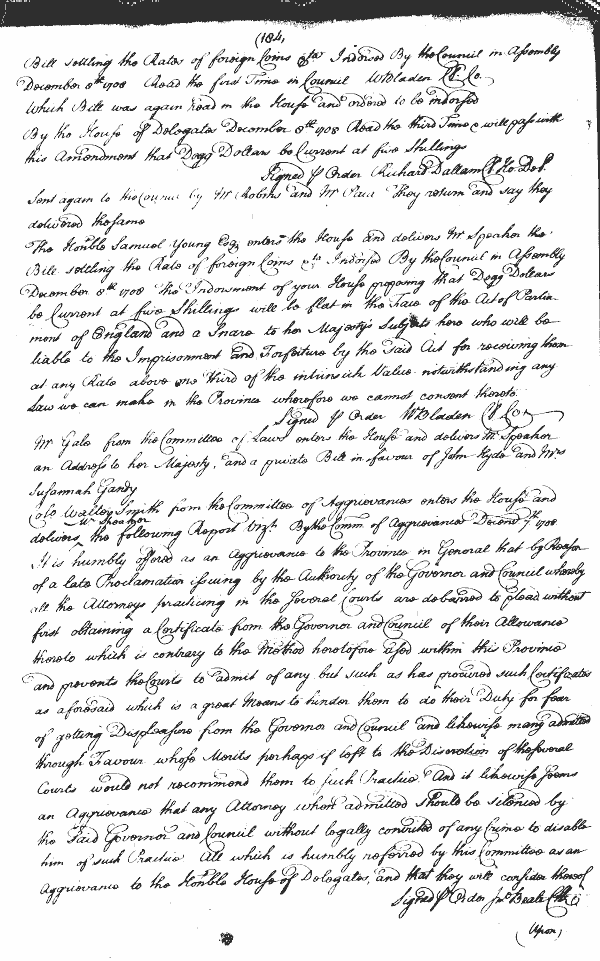 (184)
Bill settling the Rates of foreign Coins &ca Indorsed By the Council in Assembly
December 8th 1708 Read the first Time in Council WBladen Cl Co.
Which Bill was again read in the House and ordered to be indorsed
By the House of Delegates December 8th 1708 Read the third Time & will pass with
this Amendment that Dogg Dollars be Current at five Shillings
Signed p Order Richard Dallam Cl Ho. Del.
Sent again to the Council by Mr Robins and Mr Paca They return and say they
delivered the same
The Honble Samuel Young Esq enters the House and delivers Mr Speaker the
Bill settling the Rate of foreign Coins &ca Indorsed By the Council in Assembly
December 8th 1708 The Endorsment of your House proposing that Dogg Dollars
be Current at five Shillings will be flat in the Face of the Act of Parlia
ment of England and a Snare to her Majestys Subjects here who will be
liable to the Imprisonment and Forfeiture by the said Act for receiving them
at any Rate above one third of the intrinsick Value notwithstanding any
Law we can make in the Province wherefore we cannot consent thereto
Signed p Order WBladen Cl Co
Mr Gale from the Committee of Laws enters the House and delivers Mr Speaker
an Address to her Majesty, and a private Bill in favour of John Hyde and Mrs
Susannah Gandy
Colo Walter Smith from the Committee of Aggrievances enters the House and
delivers Mr Speaker the following Report Vizt. By the Comm of Aggrievances Decem 7th 1708
It is humbly offered as an Aggrievance to the Province in General that by Reason
of a late Proclamation issuing by the Authority of the Governor and Council whereby
all the Attorneys practicing in the several Courts are debarred to plead without
first obtaining a Certificate from the Governor and Council of their Allowance
thereto which is contrary to the Method heretofore used within this Province
and prevents the Courts to admit of any but such as has procured such Certificates
as aforesaid which is a great Means to hinder them to do their Duty for fear
of getting Displeasure from the Governor and Council and likewise many admitted
through Favour whose Merits perhaps if left to the Discretion of the several
Courts would not recommend them to such Practice And it likewise seems
an Aggrievance that any Attorney when admitted should be silenced by
the said Governor and Council without legally convicted of any Crime to disable
him of such Practice All which is humbly referred by this Committee as an
Aggrievance to the Honble House of Delegates, and that they will consider thereof
Signed p Order Jno Beale Clk
(Upon)